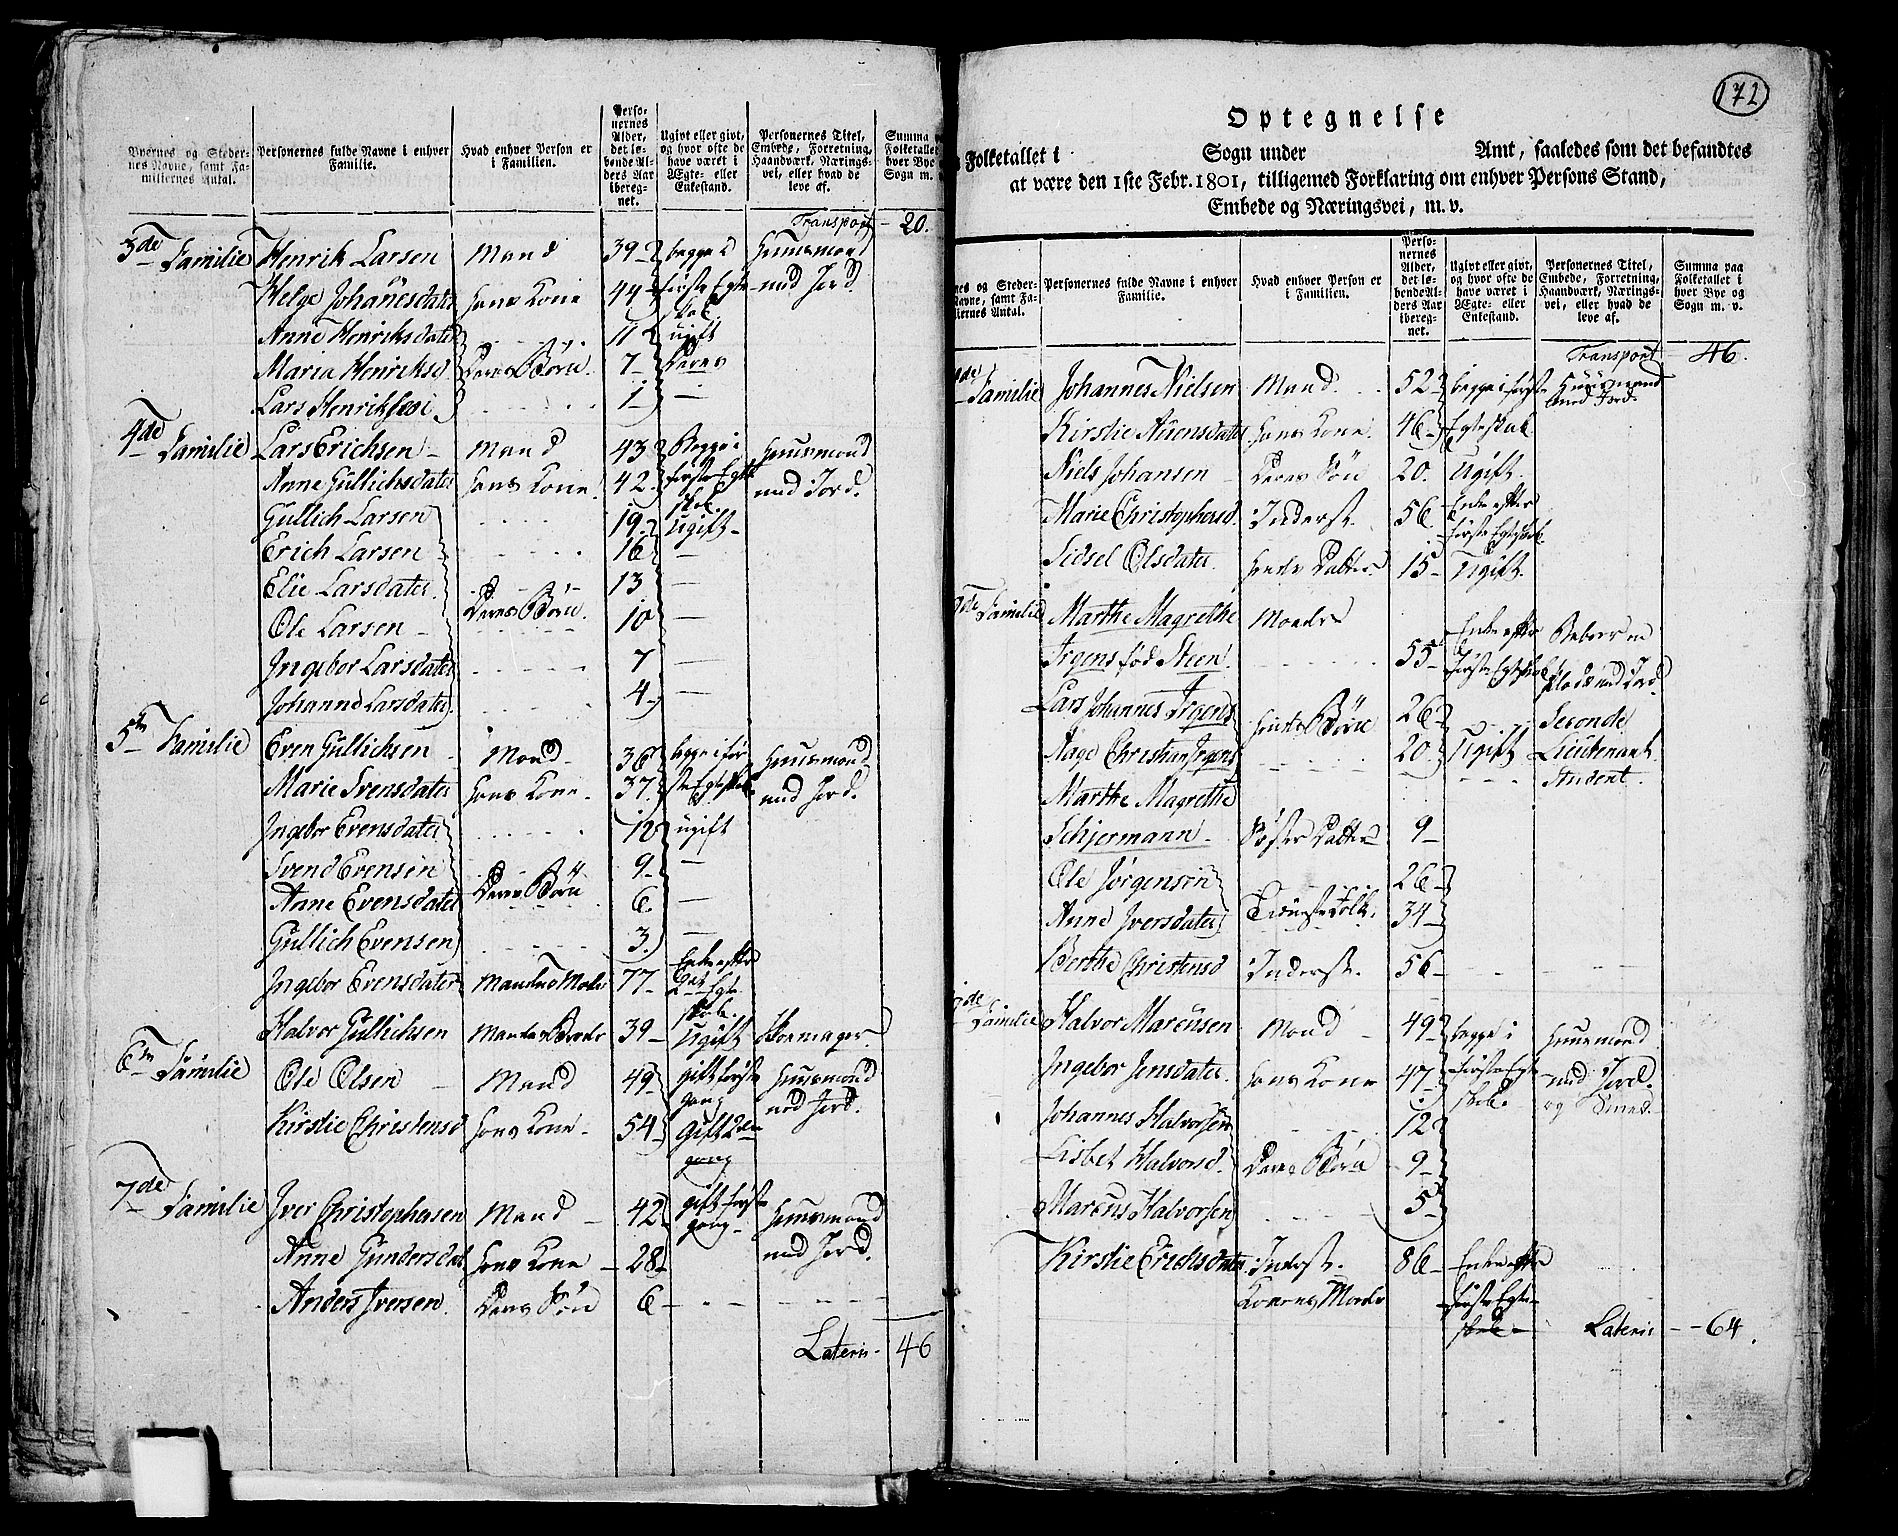 Byernes og Steder-
nes Navne, samt Fa-
miliernes Antal.
Personernes fulde Navne i enhver
Familie.
Hvad enhver Person er
i Familien.
Perso-
nernes
Alder,
det le-
bende Al-
ders Aar
ibereg-
net.
Ugivt eller givt,
og hvor ofte de
have været i
Ægte- eller
Enkestand.
Personernes Titel,
Embede, Forretning,
Haandværk, Nærings-
vei, eller hvad de
leve af.
Summa
Folketallet
hver Bye
Sogn m.
Transport - 20.
3de Familie Henrik Larsen Mand 39 begge i Huusmand
Helge Johanesdater hans Kone 44 første Egte- med Jord
skab.
Anne Henriksdater 11 ugift
Maria Henriksd Deres Børn 7 Deres
Lars Henriksen 1 —
4de Familie Lars Erichsen Mand 43 Begge i Huusmand
Anne Gullichsdater hans Kone. 42 første Egte med Jord.
skab.
Gullich Larsen 19 Ugift
Erich Larsen 16 —
Elie Larsdater 13 —
Ole Larsen Deres Børn. 10 —
Ingebor Larsdater 7 —
Johanne Larsdater 4 —
5te Familie Even Gullichsen Mand 36 begge i før- Huusmand
Marie Svensdater hans Kone. 37 ste Egteskab med Jord.
Ingebor Evensdater 12 ugift
Svend Evensen 9 —
Anne Evensdater Deres Børn 6 —
Gullich Evensen 3 —
Ingebor Evensdater Mandens Moder 77 Enke efter
2det Egte-
skab.
Halvor Gullichsen Mandens Broder 39 Ugift Skoemager.
6te Familie Ole Olsen Mand 49 gift første Huusmand
gang med Jord.
Kirstie Christensd hans Kone 54 Gift 2den
gang
7de Familie Iver Christophersen Mand 42 gift første Huusmand
gang med Jord.
Anne Gundersdat hans Kone 28
Anders Iversen Deres Søn 6
Lateris 46
172
Optegnelse
Folketallet i Sogn under Amt, saaledes som det befandtes
at være den 1ste Febr. 1801, tilligemed Forklaring om enhver Persons Stand,
Embede og Næringsvei, m. v.
es og Steder-
avne, samt Fa-
iernes Antal.
Personernes fulde Navne i enhver
Familie.
Hvad enhver Person er
i Familien.
Perso-
nernes
Alder,
det le-
bende Al-
ders Aar
ibereg-
net.
Ugivt eller givt,
og hvor ofte de
have været i
Ægte- eller
Enkestand.
Personernes Titel,
Embede, Forretning,
Haandværk, Nærings-
vei, eller hvad de
leve af.
Summa paa
Folketallet i
hver Bye og
Sogn m. v.
Transport 46.
de Familie Johannes Nielsen Mand. 52 begge i første Huusmand
med Jord.
Kirstie Auensdater hans Kone. 46 Egteskab
Niels Johansen Deres Søn 20. Ugift.
Marie Christophersd. Inderst. 56 Enke efter
første Egteskab.
Sidsel Olsdater. hendes Datter 15 Ugift.
de Familie Marthe Magrethe Moder
Irgens fød Steen. 55 Enke efter
første Egteskab
Lars Johannes Irgens hendes Børn 26 Seconde
Lieutenant
Aage Christian Irgens 20 Ugift Student
Marthe Magrethe
Schjermann Søster Datter 9
Ole Jørgensen 26
Anne Iversdater Tienistefolk. 34
Berthe Christensd Inderst. 56
de Familie Halvor Marcusen Mand 49 begge i Huusmand
Ingebor Jensdater. hans Kone 47 første Egte- med Jord.
skab.
Johannes Halvorsen 12
Lisbet Halvorsd. Deres Børn 9
Marcus Halvorsen 5
Kirstie Erichsdater Inderst. 86 Enke efter
Konens Moder første Egte-
skab
Lateris 64.